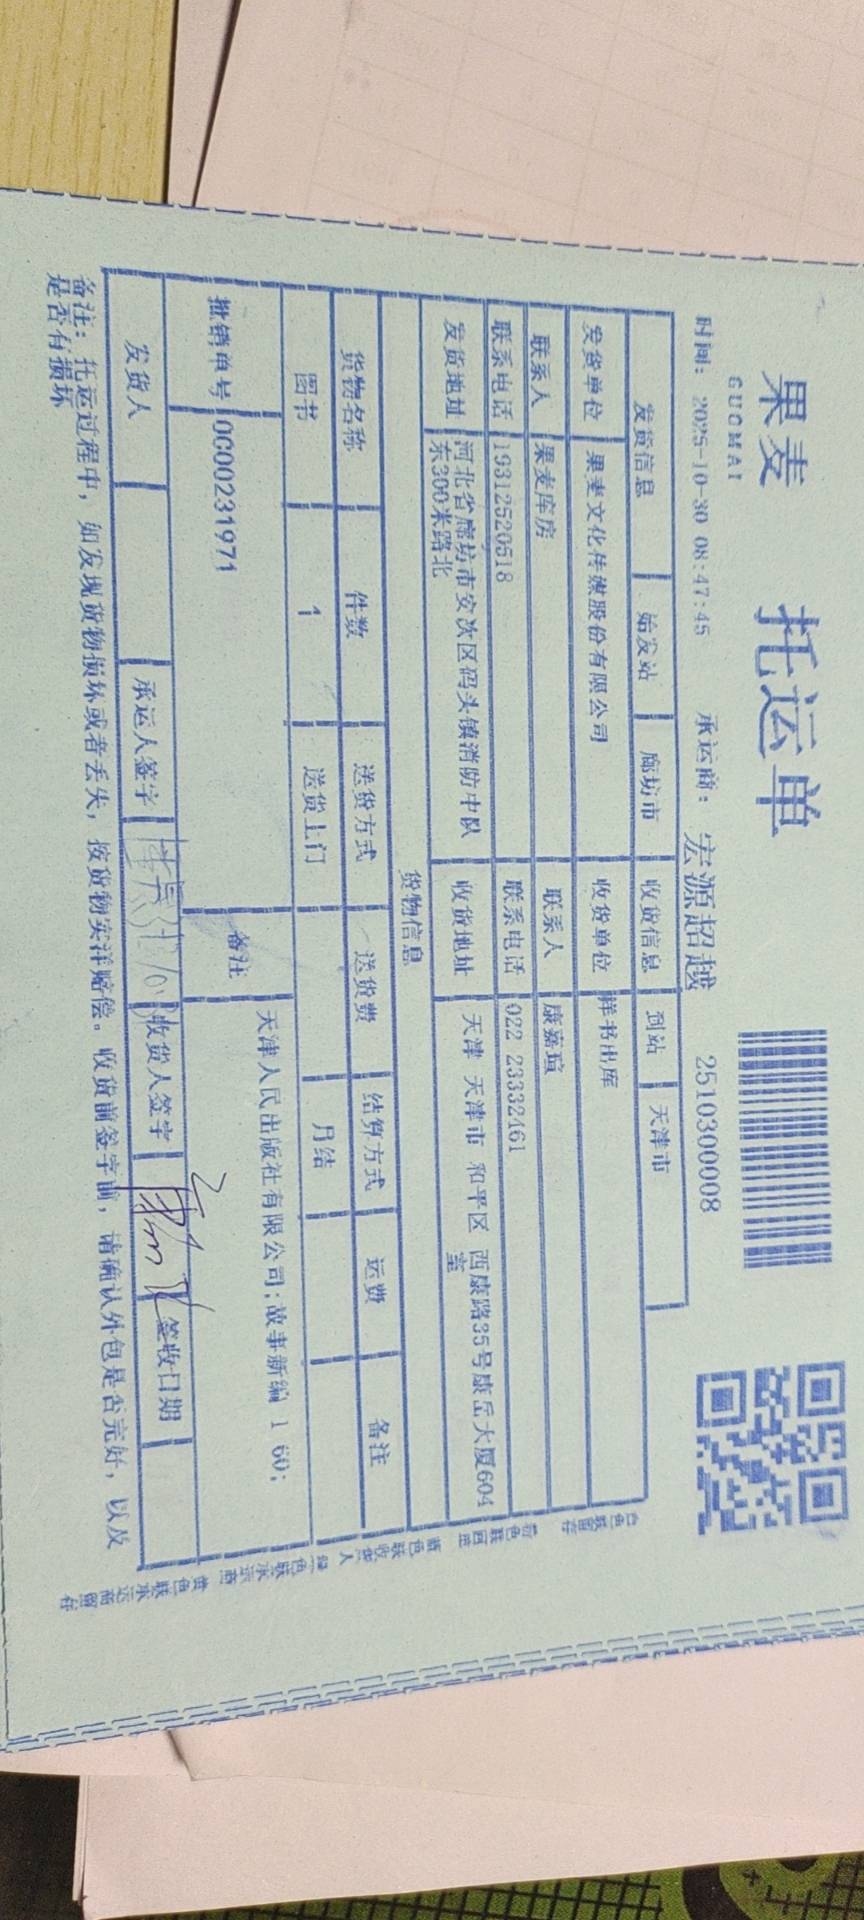 果麦
GUOMAI
托运单
时间: 2025-10-30 08:47:45 承运商: 宏源超越 2510300008
发货信息 始发站 廊坊市 收货信息 到站 天津市
发货单位 果麦文化传媒股份有限公司 收货单位 样书出库
联系人 果麦库房 联系人 康嘉瑄
联系电话 19312520518 联系电话 022 23332461
发货地址 河北省廊坊市安次区码头镇消防中队 收货地址 天津 天津市 和平区 西康路35号康岳大厦604
东300米路北 室
货物信息
货物名称 件数 送货方式 送货费 结算方式 运费 备注
图书 1 送货上门 月结
批销单号 0G00231971 备注 天津人民出版社有限公司;故事新编 1 60;
发货人 承运人签字 收货人签字 签收日期
备注: 托运过程中, 如发现货物损坏或者丢失, 按货物实洋赔偿。收货前签字前, 请确认外包是否完好, 以及
是否有损坏
白色联留存
蓝色联收货人
绿色联承运商
黄色联承运商留存